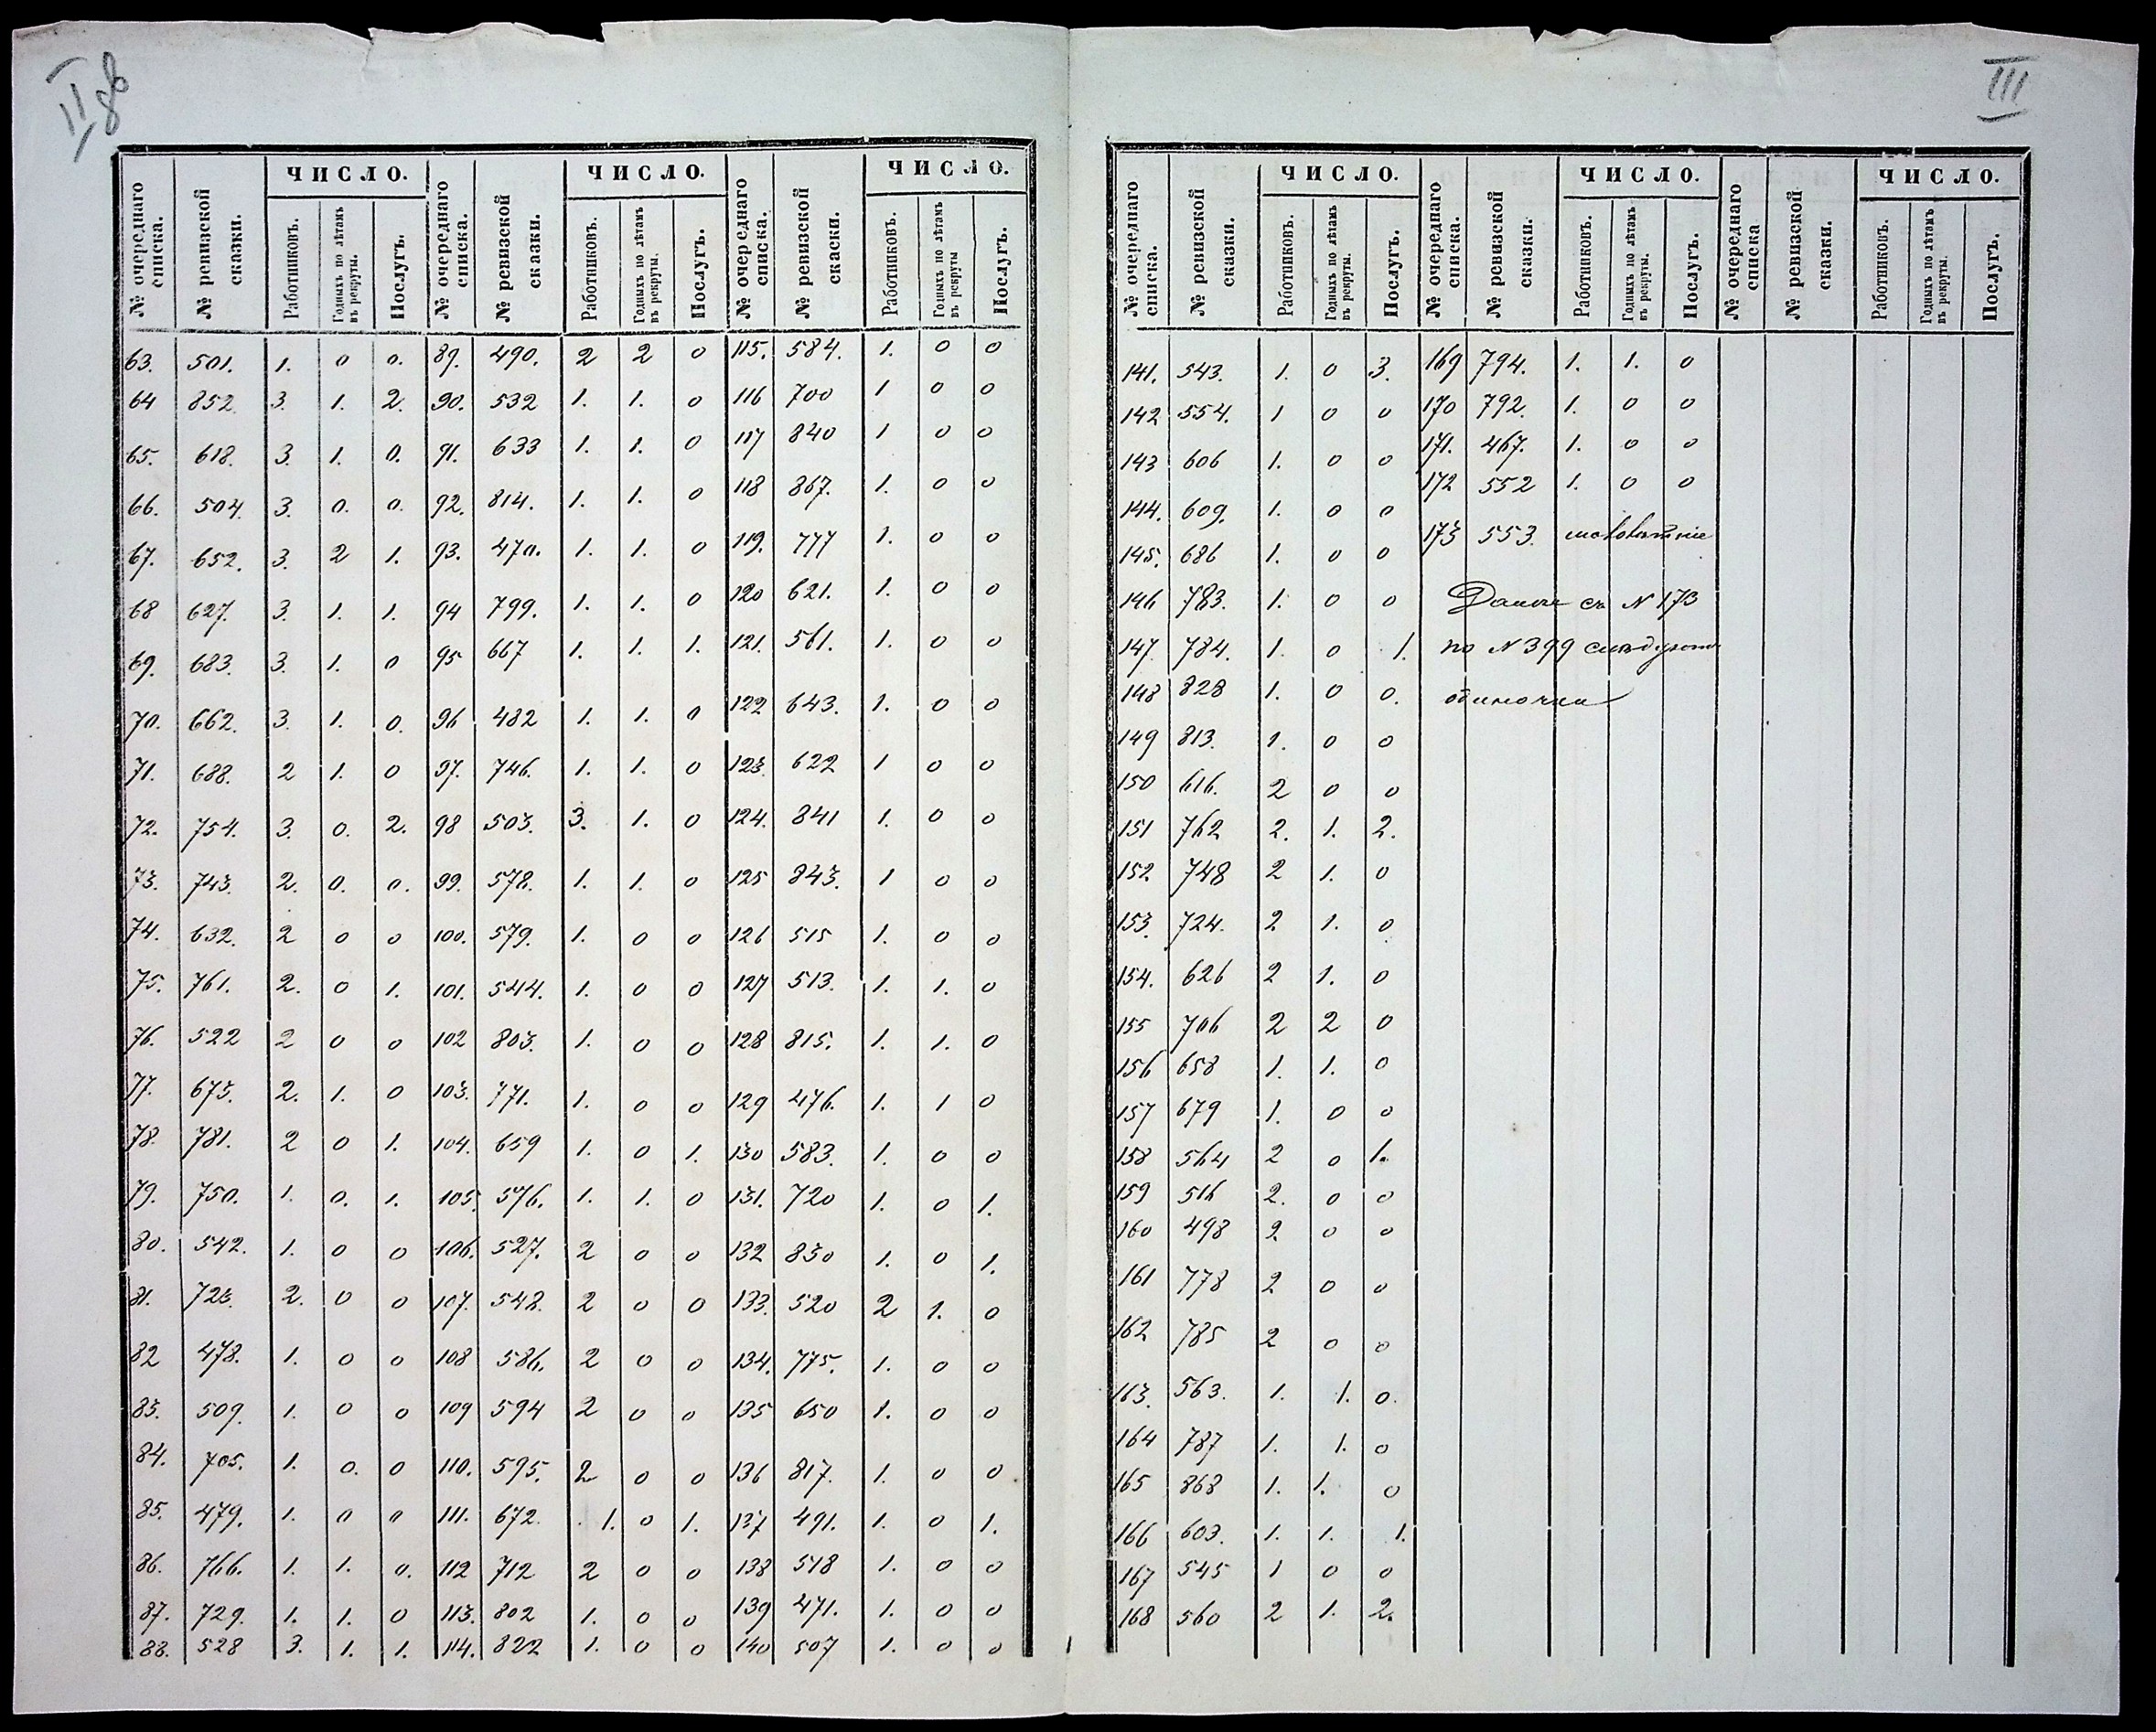 II об
ЧИСЛО. ЧИСЛО. ЧИСЛО.
№ очереднаго списка. № ревизской сказки. Работниковъ. Годныхъ по лѣтамъ въ рекруты. Послугъ. № очереднаго списка. № ревизской сказки. Работниковъ. Годныхъ по лѣтамъ въ рекруты. Послугъ. № очереднаго списка. № ревизской скаски. Работниковъ. Годныхъ по лѣтамъ въ рекруты Послугъ.
63. 501. 1. 0 0. 89. 490. 2 2 0 115. 584. 1. 0 0
64 852. 3. 1. 2. 90. 532 1. 1. 0 116 700 1 0 0
65. 618. 3. 1. 0. 91. 633 1. 1. 0 117 840 1 0 0
66. 504. 3. 0. 0. 92. 814. 1. 1. 0 118 867. 1. 0 0
67. 652. 3. 2 1. 93. 470. 1. 1. 0 119. 777 1. 0 0
68 627. 3. 1. 1. 94 799. 1. 1. 0 120 621. 1. 0 0
69. 683. 3. 1. 0 95 667 1. 1. 1. 121. 561. 1. 0 0
70. 662. 3. 1. 0. 96 482 1. 1. 0 122 643. 1. 0 0
71. 688. 2 1. 0 97. 746. 1. 1. 0 123. 622 1 0 0
72. 754. 3. 0. 2. 98 503. 3. 1. 0 124. 841 1. 0 0
73. 743. 2. 0. 0. 99. 578. 1. 1. 0 125 843. 1 0 0
74. 632. 2 0 0 100. 579. 1. 0 0 126 515 1. 0 0
75. 761. 2. 0 1. 101. 544. 1. 0 0 127 513. 1. 1. 0
76. 522 2 0 0 102 803. 1. 0 0 128 815. 1. 1. 0
77. 673. 2. 1. 0 103. 771. 1. 0 0 129 476. 1. 1 0
78. 781. 2 0 1. 104. 659 1. 0 1. 130 583. 1. 0 0
79. 750. 1. 0. 1. 105. 576. 1. 1. 0 131. 720 1. 0 1.
80. 542. 1. 0 0 106. 527. 2 0 0 132 830 1. 0 1.
81. 723. 2. 0 0 107. 548. 2 0 0 133. 520 2 1. 0
82 478. 1. 0 0 108 586. 2 0 0 134. 775. 1. 0 0
83. 509. 1. 0 0 109 594 2 0 0 135 650 1. 0 0
84. 705. 1. 0. 0 110. 595. 2 0 0 136 817. 1. 0 0
85. 479. 1. 0 0 111. 672. 1. 0 1. 137 491. 1. 0 1.
86. 766. 1. 1. 0. 112 712 2 0 0 138 518 1. 0 0
87. 729. 1. 1. 0 113. 802 1. 0 0 139 471. 1. 0 0
88. 528 3. 1. 1. 114. 822 1. 0 0 140 507 1. 0 0
III
ЧИСЛО. ЧИСЛО. ЧИСЛО.
№ очереднаго списка. № ревизской сказки. Работниковъ. Годныхъ по лѣтамъ въ рекруты. Послугъ. № очереднаго списка. № ревизской сказки. Работниковъ. Годныхъ по лѣтамъ въ рекруты. Послугъ. № очереднаго списка № ревизской сказки. Работниковъ. Годныхъ по лѣтамъ въ рекруты. Послугъ.
141. 543. 1. 0 3. 169 794. 1. 1. 0
142 554. 1 0 0 170 792. 1. 0 0
143 606 1. 0 0 171. 467. 1. 0 0
144. 609. 1. 0 0 172 552 1. 0 0
145. 686 1. 0 0 173 553. малолѣтніе
146 783. 1. 0 0 Далѣе съ N 173
147. 784. 1. 0 1. по N 399 слѣдуютъ
148 828 1. 0 0. одиночки
149 813. 1. 0 0
150 616. 2 0 0
151 762 2. 1. 2.
152. 748 2 1. 0
153. 724. 2 1. 0
154. 626 2 1. 0
155 706 2 2 0
156 658 1. 1. 0
157 679 1. 0 0
158 564 2 0 1.
159 516 2. 0 0
160 498 2 0 0
161 778 2 0 0
162 785 2 0 0
163. 563. 1. 1. 0.
164 787 1. 1. 0
165 868 1. 1. 0
166 603. 1. 1. 1.
167 545 1 0 0
168 560 2 1. 2.